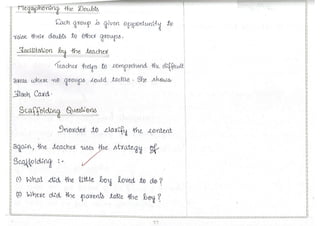 Megaphoning the Doubts
Each group is given opportunity to
raise their doubts to other groups.
Facilitation by the teacher
Teacher helps to comprehend the difficult
areas where no groups could tackle. She shows
Flash Card.
Scaffolding Questions
Inorder to clarify the content
again, the teacher uses the strategy of
Scaffolding :-
(1) What did the little boy loved to do?
(2) Where did the parents take the boy?